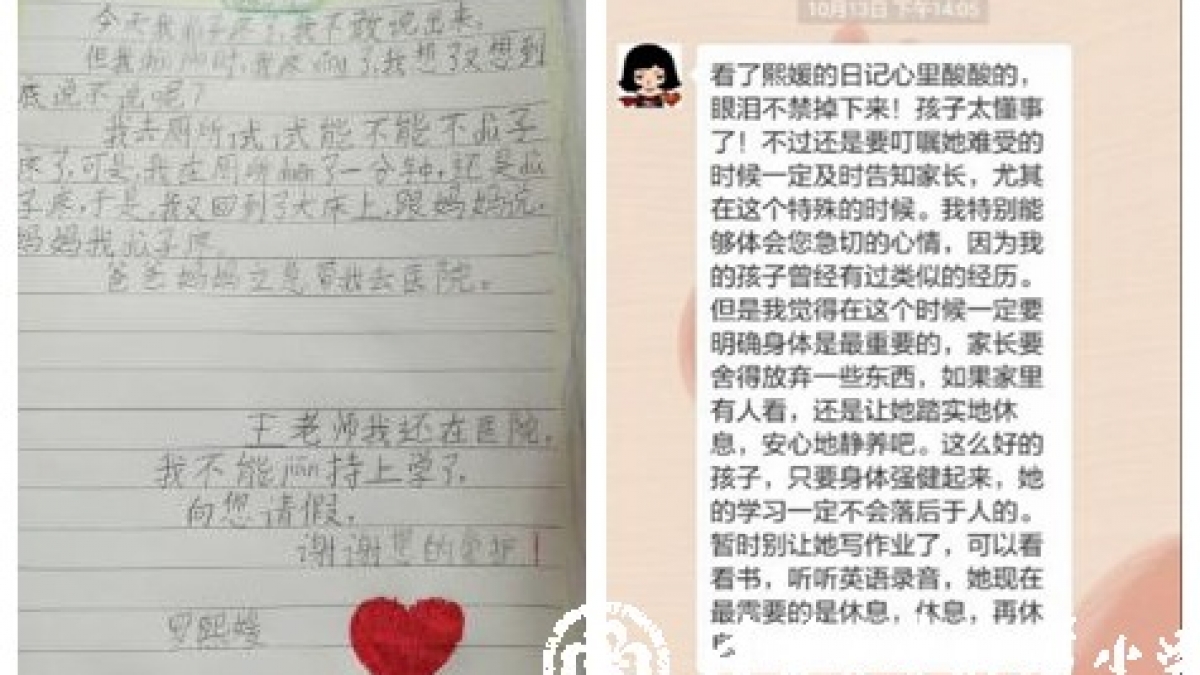 今天我
床了,我不敢说出来。
但我
时,我
了,我想了又想到
底说不说呢?
我去厕所,试试能不能不
床了,可是,我在厕所
了一分钟,还是
床,于是,我又回到了大床上,跟妈妈说,
妈妈我
床。
爸爸妈妈
我去医院。
王老师我还在医院,
我不能jiān持上学了,
向您请假,
谢谢您的
!
罗熙媛
10月13日 下午14:05
看了熙媛的日记心里酸酸的,
眼泪不禁掉下来!孩子太懂事
了!不过还是要叮嘱她难受的
时候一定及时告知家长,尤其
在这个特殊的时候。我特别能
够体会您急切的心情,因为我
的孩子曾经有过类似的经历。
但是我觉得在这个时候一定要
明确身体是最重要的,家长要
舍得放弃一些东西,如果家里
有人看,还是让她踏实地休
息,安心地静养吧。这么好的
孩子,只要身体强健起来,她
的学习一定不会落后于人的。
暂时别让她写作业了,可以看
看书,听听英语录音,她现在
最需要的是休息,休息,再休
息
小学